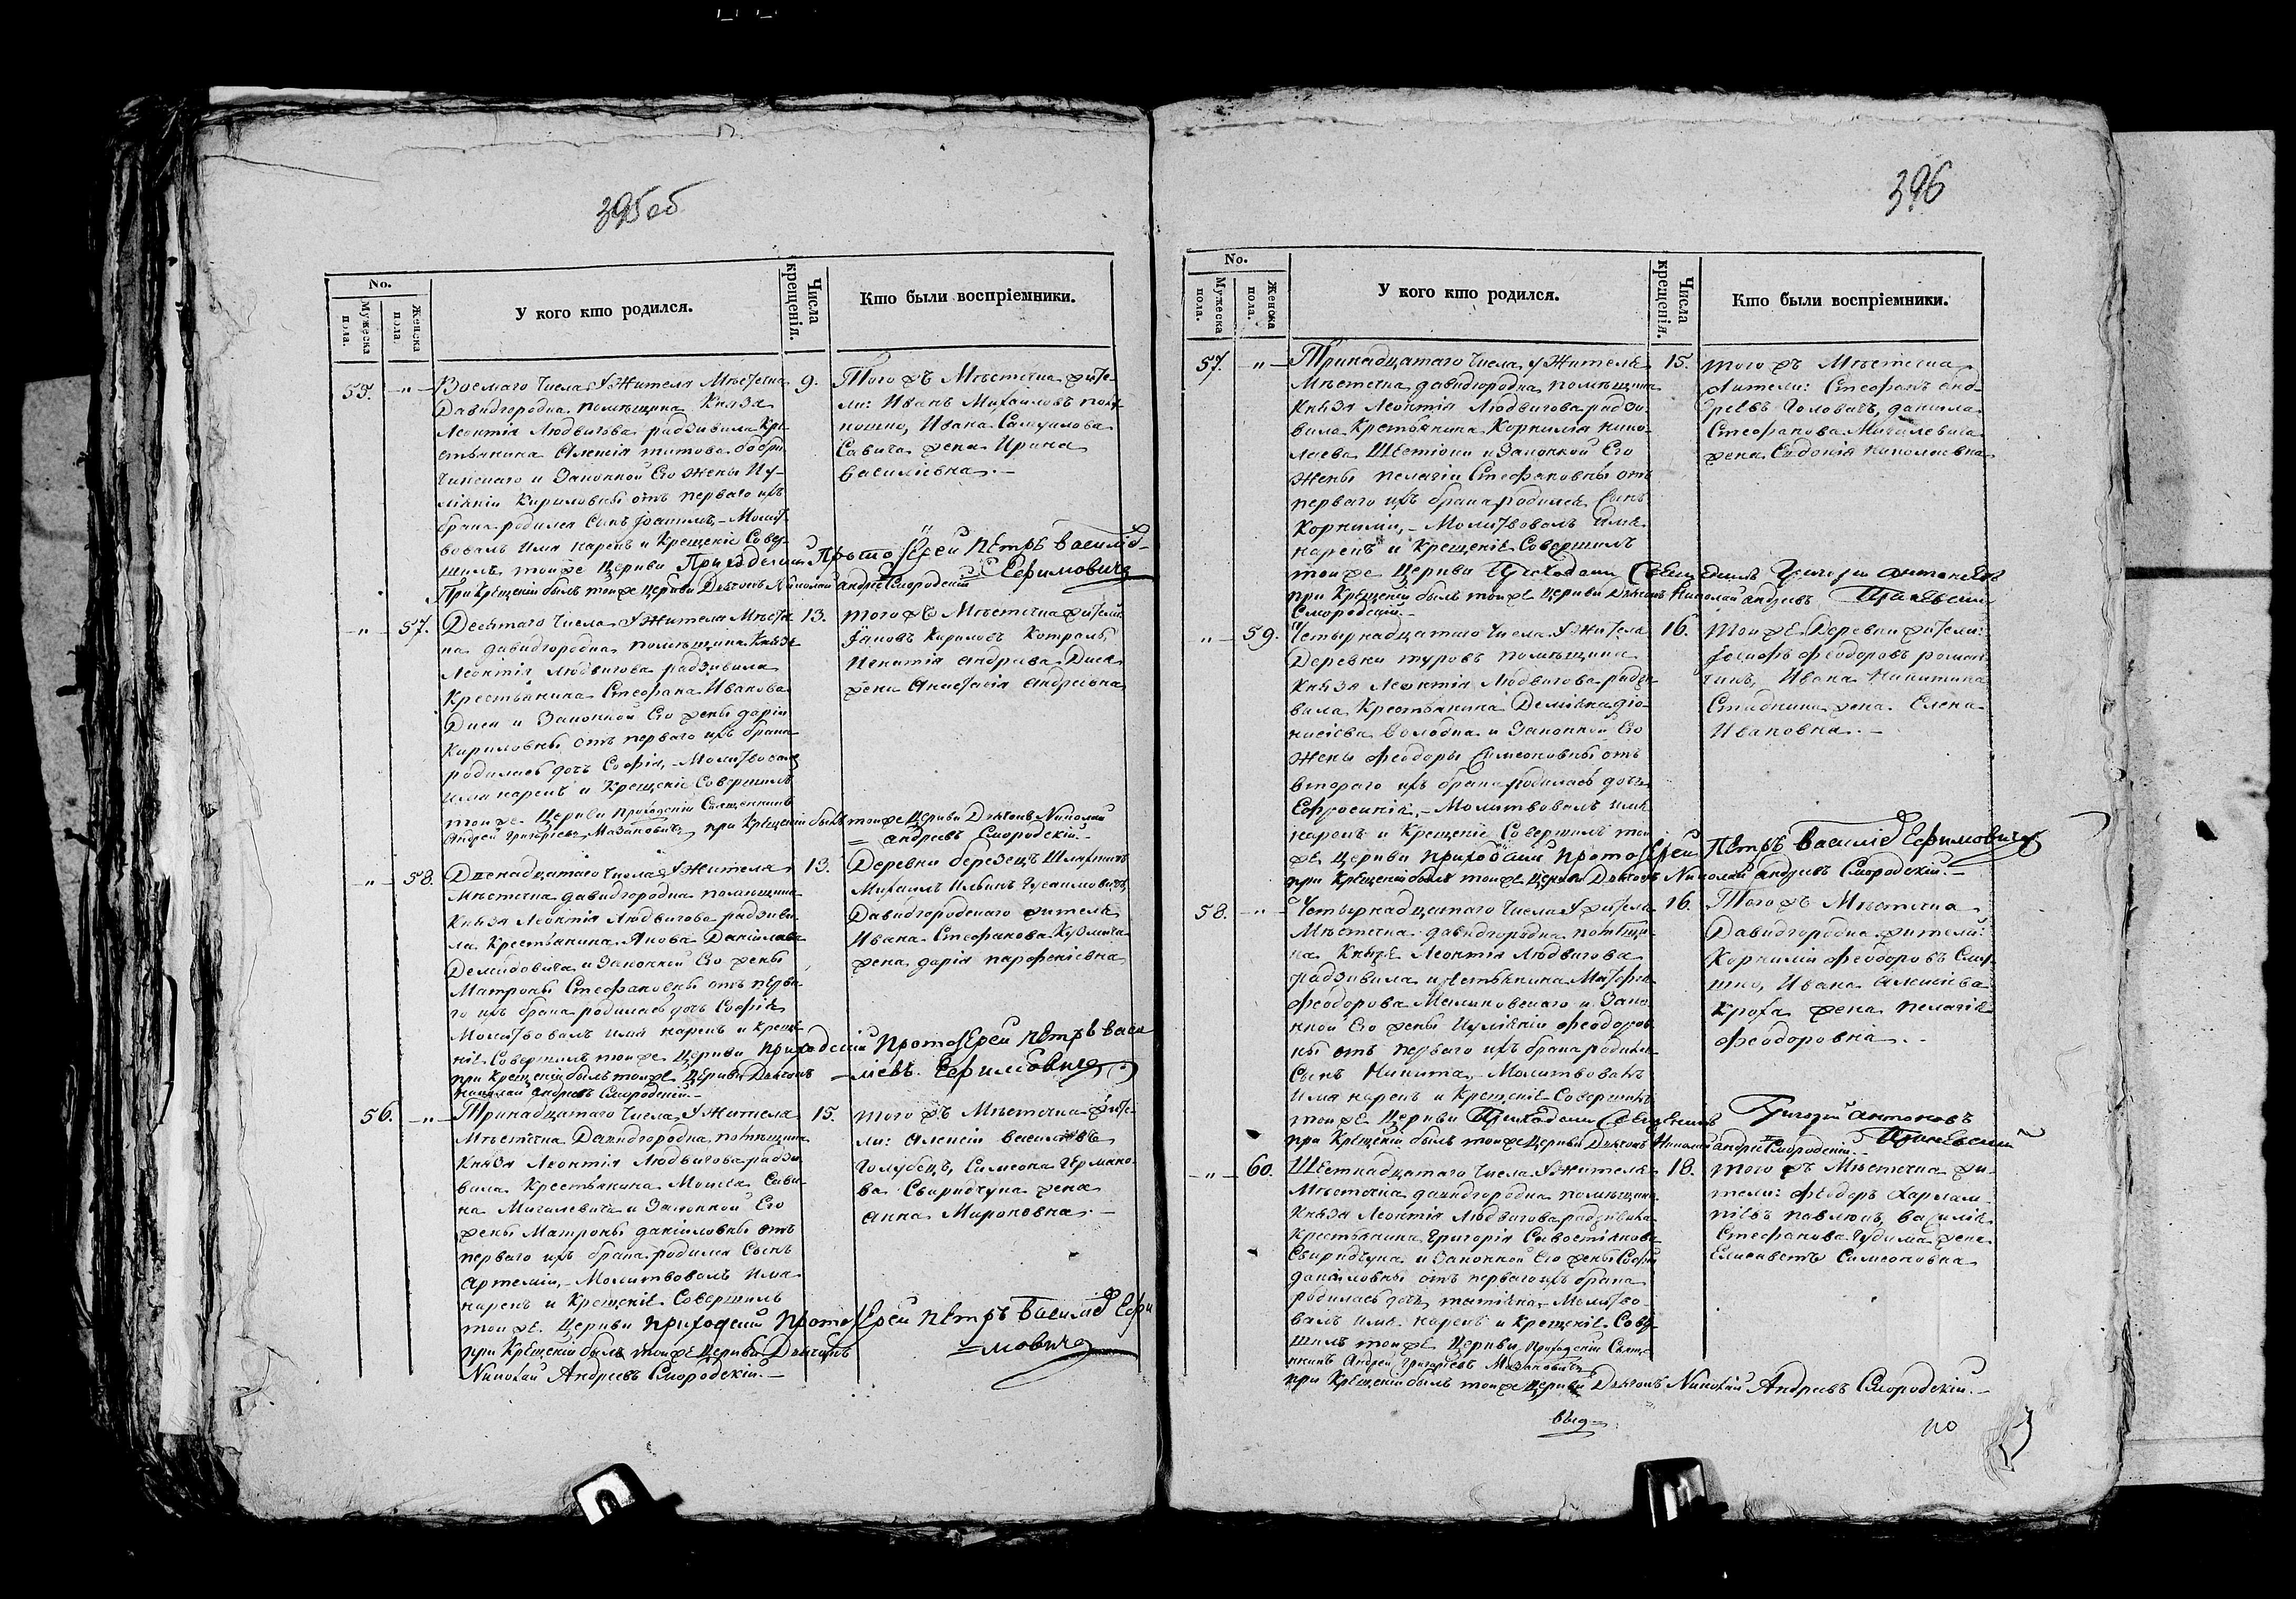 395об
No.
Мужеска пола.
Женска пола
У кого кто родился.
Числа крещенія.
Кто были воспріемники.
55. „ Восмаго числа у Жителя Мѣстечка 9.
Давидгородка помѣщика Князя
Леонтія Людвигова радзивила Кре-
стьянина Алексія титова
и Законной Его жены Іу-
ліяніи Кириловны отъ перваго ихъ
брака родился Сынъ Іоакимъ, – Молит-
вовалъ Имя нарекъ и Крещеніе Совер-
шилъ тоижъ Церкви Приходскій Протоіерей Петръ Василіевъ
Ефимовичъ
При Крещеніи былъ тоиже Церкви Дьячокъ Николай андреевъ Смородскій
Того жъ Мѣстечка жите-
ли: Иванъ Михаиловъ
Ивана Самуилова
Савича жена Ирина
василіевна. –
„ 57. Десятаго числа у Жителя Мѣстеч- 13.
ка давидгородка помѣщика Князя
Леонтія Людвигова радзивила
Крестьянина Стефана Иванова
и Законной Его жены дарьи
Кириловны отъ перваго ихъ брака
родилась дочь Софія, – Молитвовалъ
имя нарекъ и Крещеніе Совершилъ
тоиже Церкви приходскій Священникъ
Андрей Григоріевъ Мазановичъ при Крещеніи былъ тоиже Церкви Дьячокъ Николай
андреевъ Смородскій. –
того жъ Мѣстечка жители
Іаковъ Кириловъ
Игнатія андреева
жена Анастасія андреевна
„ 58. Двенадцатаго числа у Жителя 13.
Мѣстечка давидгородка помѣщика
Князя Леонтія Людвигова радзиви-
ла Крестьянина Якова Даніилова
Демидовича и Законной Его жены
Матроны Стефановны отъ перва-
го ихъ брака родилась дочь Софія
Молитвовалъ имя нарекъ и Креще-
ніе Совершилъ тоиже Церкви приходскій Протоіерей Петръ васи-
ліевъ Ефимовичъ
при Крещеніи былъ тоиже Церкви Дьячокъ
Николай андреевъ Смородскій. –
Деревни березецъ
Михаилъ Ильинъ
Давидгородскаго жителя
Ивана Стефанова
жена дарія парфеніевна
56. „ Тринадцатаго числа у Жителя 15.
Мѣстечка Давидгородка помѣщика
Князя Леонтія Людвигова радзи-
вила Крестьянина Моисея Сави-
на Мигалевича и Законной Его
жены Матроны даніиловны отъ
перваго ихъ брака родился Сынъ
артемій, – Молитвовалъ Имя
нарекъ и Крещеніе Совершилъ
тоиже Церкви приходскій Протоіерей петръ Василіевъ Ефи-
мовичъ
при Крещеніи былъ тоиже Церкви Дьячокъ
Николай Андреевъ Смородскій. –
того жъ Мѣстечка жите-
ли: алексій василіевъ
Голубецъ, Симеона Германо-
ва Свиридчука жена
анна Мироновна. –
396
No.
Мужеска пола.
Женска пола.
У кого кто родился.
Числа крещенія.
Кто были воспріемники.
57. „ Тринадцатаго числа у Жителя 15.
Мѣстечка давидгородка помѣщика
Князя Леонтія Людвигова радзи-
вила Крестьянина Корнилія нико-
лаева и Законной Его
жены пелагіи Стефановны отъ
перваго ихъ брака родился Сынъ
Корнилій, – Молитвовалъ имя
нарекъ и Крещеніе Совершилъ
тоиже Церкви Приходскій Священникъ Григорій антоновъ
при Крещеніи былъ тоиже Церкви Дьячокъ Николай андреевъ
Смородскій
того жъ Мѣстечка
жители: Стефанъ анд-
реевъ Головачъ, данила
Стефанова Мигалевича
жена Евдокія николаевна
„ 59. Четырнадцатаго числа у Жителя 16.
Деревни туровъ помѣщика
Князя Леонтія Людвигова радзи-
вила Крестьянина Деміяна діо-
нисіева и Законной Его
жены феодоры Симеоновны отъ
втораго ихъ брака родилась дочь
Ефросинія, – Молитвовалъ имя
нарекъ и Крещеніе Совершилъ тои
же Церкви приходскій протоіерей Петръ Василіевъ Ефимовичъ
при Крещеніи былъ тоиже Церкви Дьячокъ Николай андреевъ Смородскій. –
Тоиже Деревни жители:
Іосифъ феодоровъ роман-
чикъ, Ивана Никитина
жена Елена
Ивановна. –
58. „ Четырнадцатаго числа у жителя 16.
Мѣстечка давидгородка помѣщи-
ка Князя Леонтія Людвигова
радзивила крестьянина Матфея
феодорова и Зако-
нной Его жены Іуліяніи феодоров-
ны отъ перваго ихъ брака родился
Сынъ Никита, – Молитвовалъ
Имя нарекъ и Крещеніе Совершилъ
тоиже Церкви Приходскій Священникъ Григорій антоновъ
при Крещеніи былъ тоиже Церкви Дьячокъ Николай андреевъ Смородскій. –
Того жъ Мѣстечка
Давидгородка жители:
Корнилій феодоровъ
Ивана алексіева
жена пелагія
феодоровна. –
„ 60. Шестнадцатаго числа у Жителя 18.
Мѣстечка давидгородка помѣщика
Князя Леонтія Людвигова радзивила
Крестьянина Григорія Савостіянова
Свиридчука и Законной Его жены Софіи
даніиловны отъ перваго ихъ брака
родилась дочь татіяна, – Молитво-
валъ имя нарекъ и Крещеніе Совер-
шилъ тоиже Церкви приходскій Свяще-
нникъ Андрей Григоріевъ Мазановичъ
при Крещеніи былъ тоиже Церкви Дьячокъ Николай Андреевъ Смородскій. –
того жъ Мѣстечка жи-
тели: феодоръ харлам-
піевъ павлюкъ, василія
Стефанова жена
Елисаветъ Симеоновна